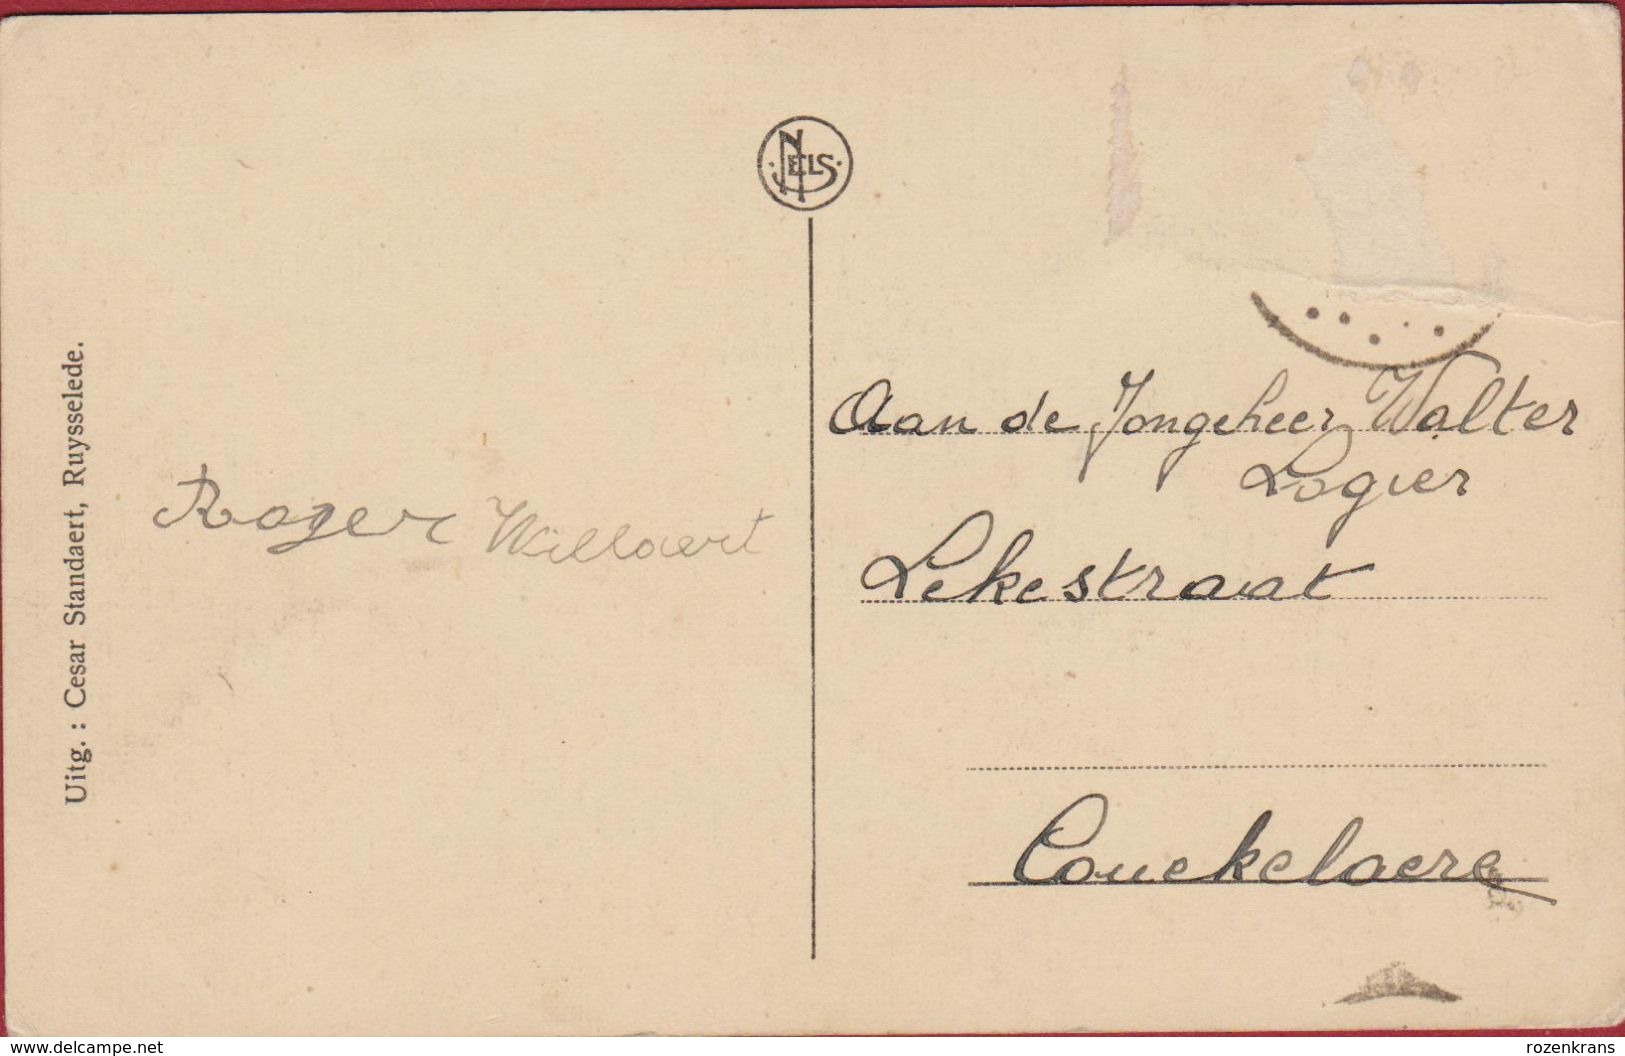 NELS
Uitg. : Cesar Standaert, Ruysselede.
Roger Willaert
Aan de Jongeheer Walter
Logier
Lekestraat
Couckelaere
www.delcampe.net
rozenkrans